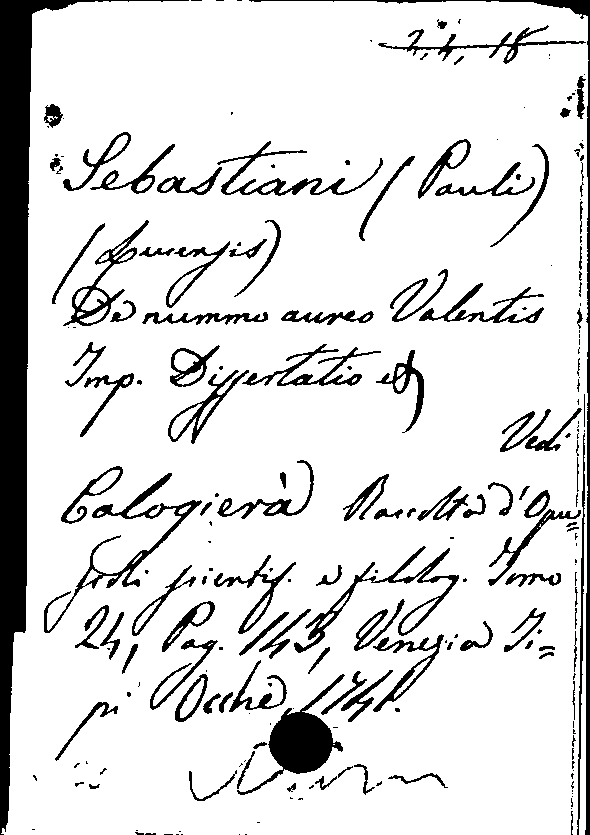 2, 4, 18
Sebastiani (Pauli)
(Lucensis)
De nummo aureo Valentis
Imp. Dissertatio &
Vedi
Calogierà Raccolta d'Opu=
scoli scientif. e filolog. Tomo
24, Pag. 143, Venezia Ti=
pi Occhi, 1741.
Num